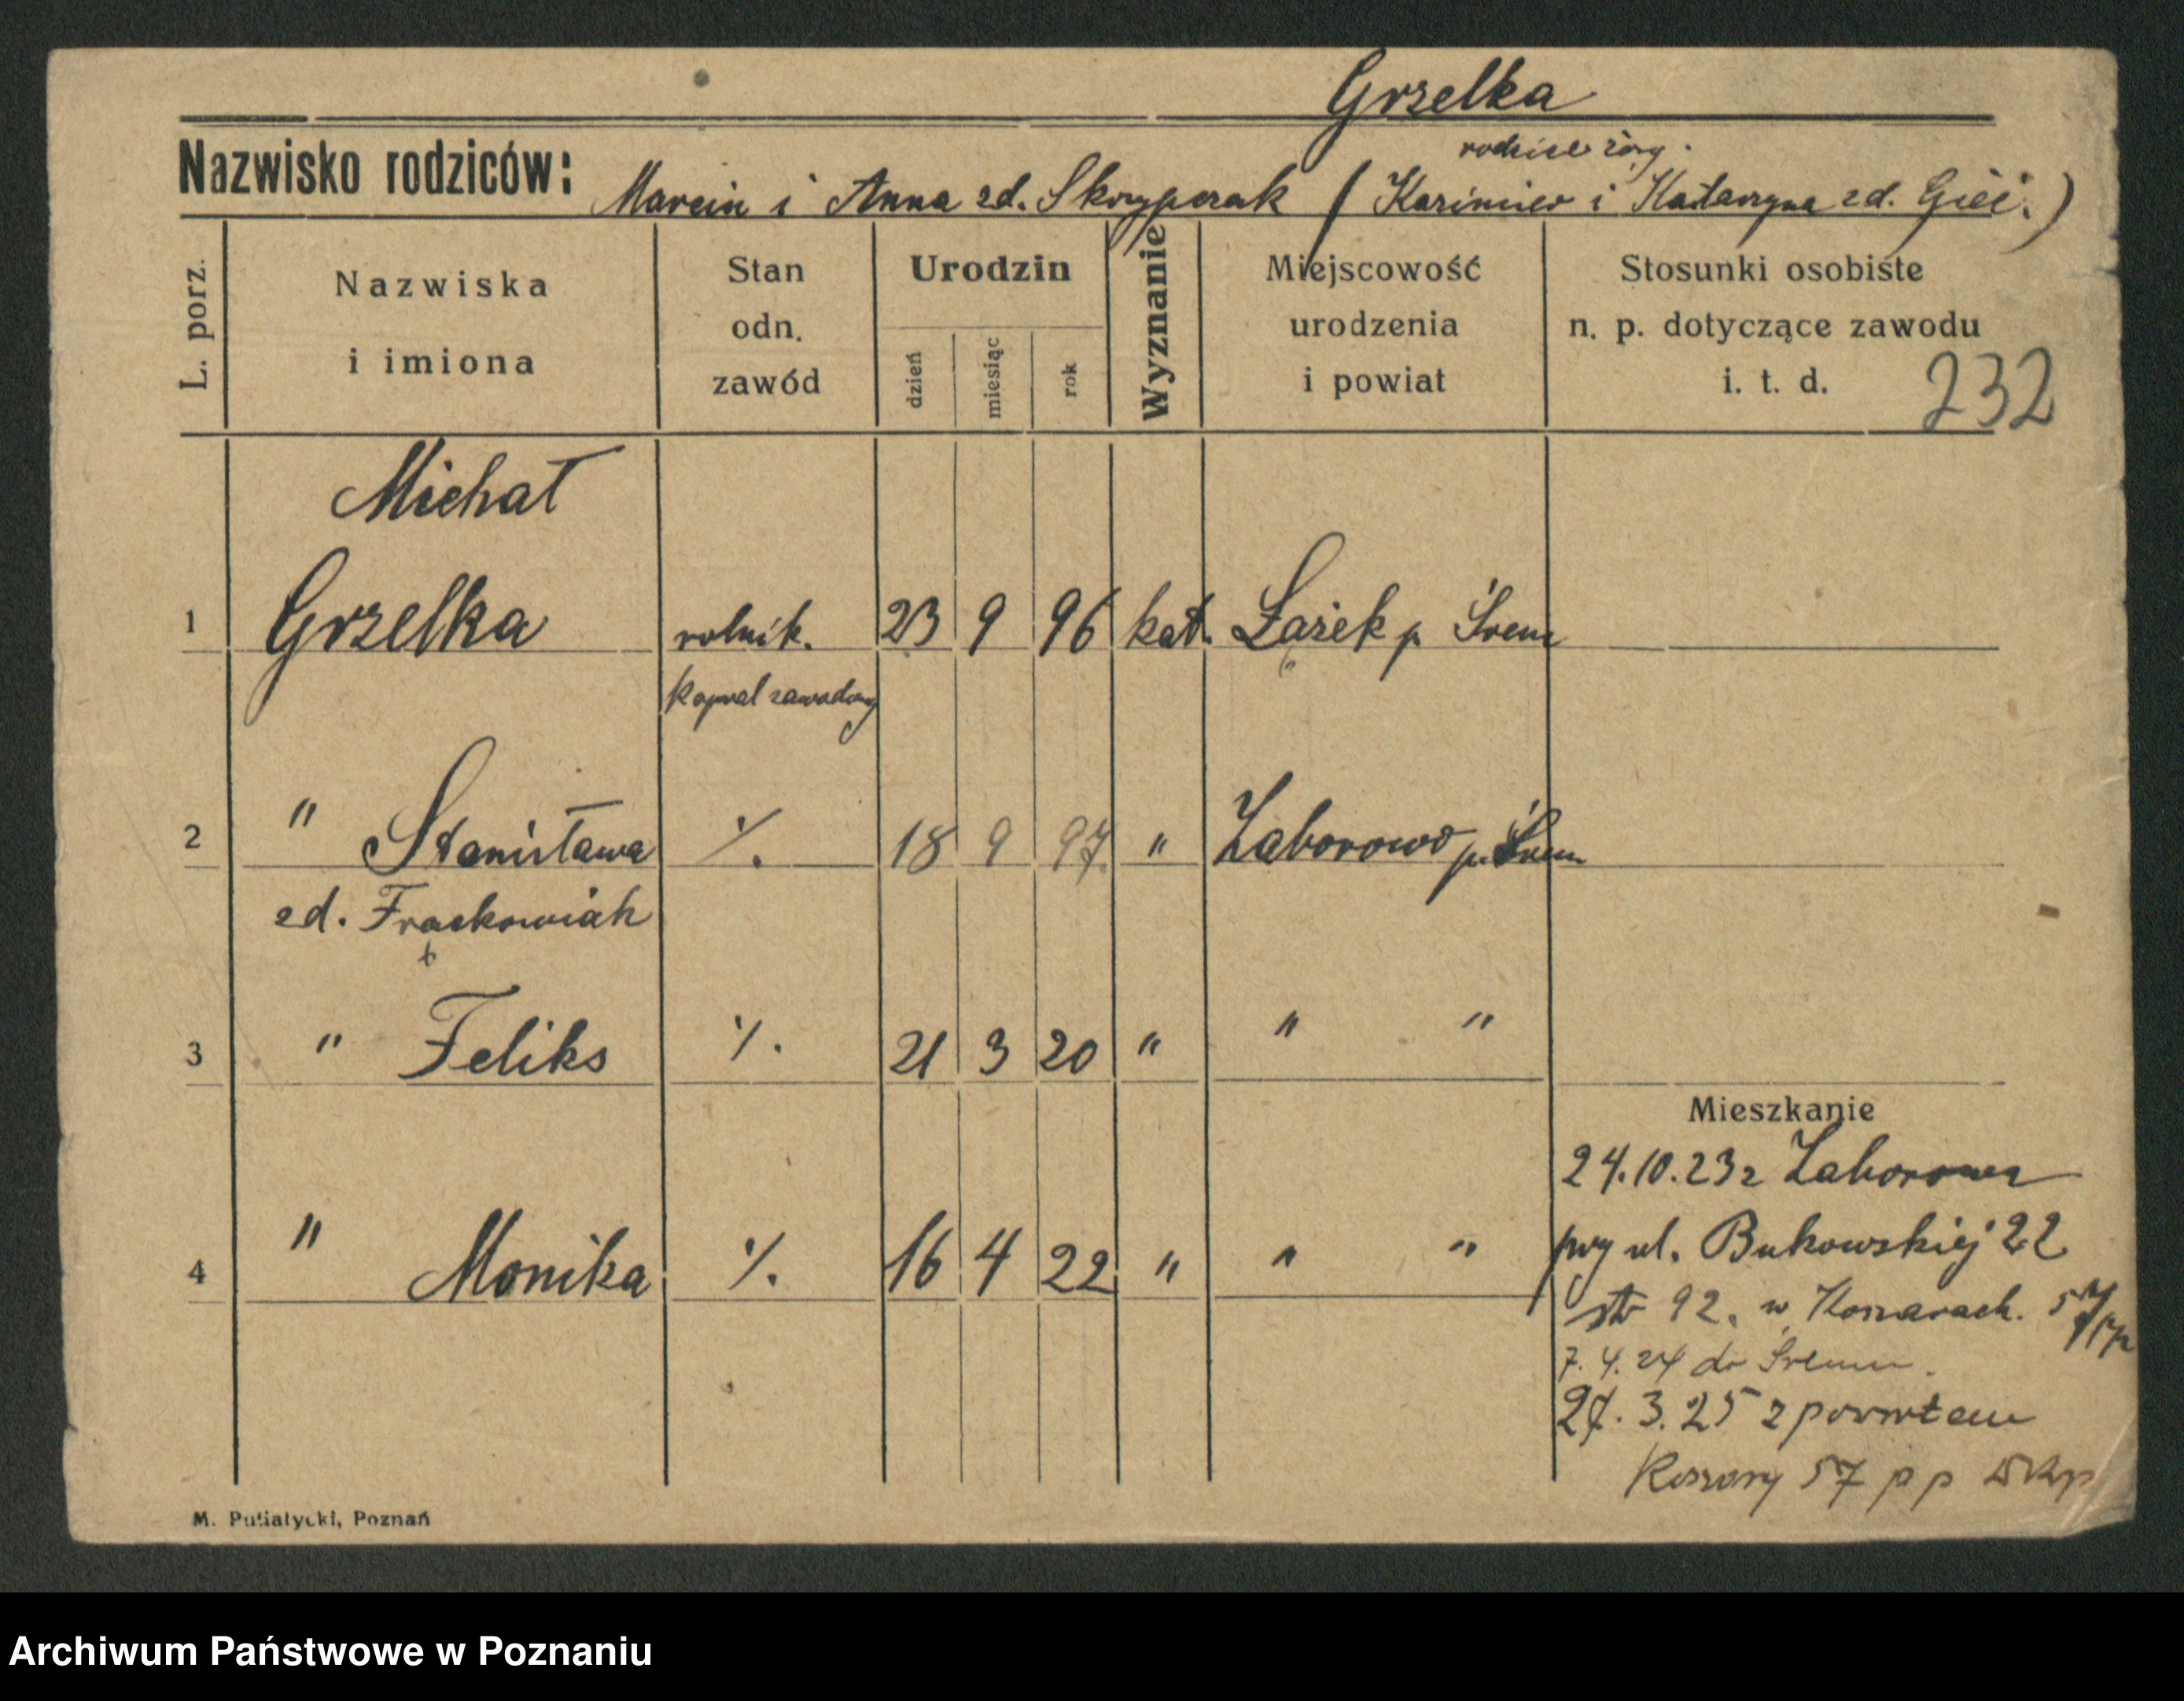 Grzelka
rodzice żony.
Nazwisko rodziców: Marcin i Anna zd. Skrzypczak (Kazimierz i Katarzyna zd. )
L. porz.
Nazwiska i imiona
Stan odn. zawód
Urodzin
dzień
miesiąc
rok
Wyznanie
Miejscowość urodzenia i powiat
Stosunki osobiste n. p. dotyczące zawodu i. t. d.
232
Michał
1 Grzelka rolnik. 23 9 96 kat. Łążek p Śrem
kapral zawodowy
2 " Stanisława ·/. 18 9 97. " Zaborowo p. Śrem
zd. Frąckowiak
3 " Feliks ·/. 21 3 20 " " "
Mieszkanie
24.10.23 z Zaborowa
przy ul. Bukowskiej 22
4 " Monika ·/. 16 4 22 " " "
str 92. w Koszarach.
7. 4. 24 do Śremu.
27. 3. 25 z powrotem
Koszary 57 p p Wlkp
M. Putiatycki, Poznań
Archiwum Państwowe w Poznaniu